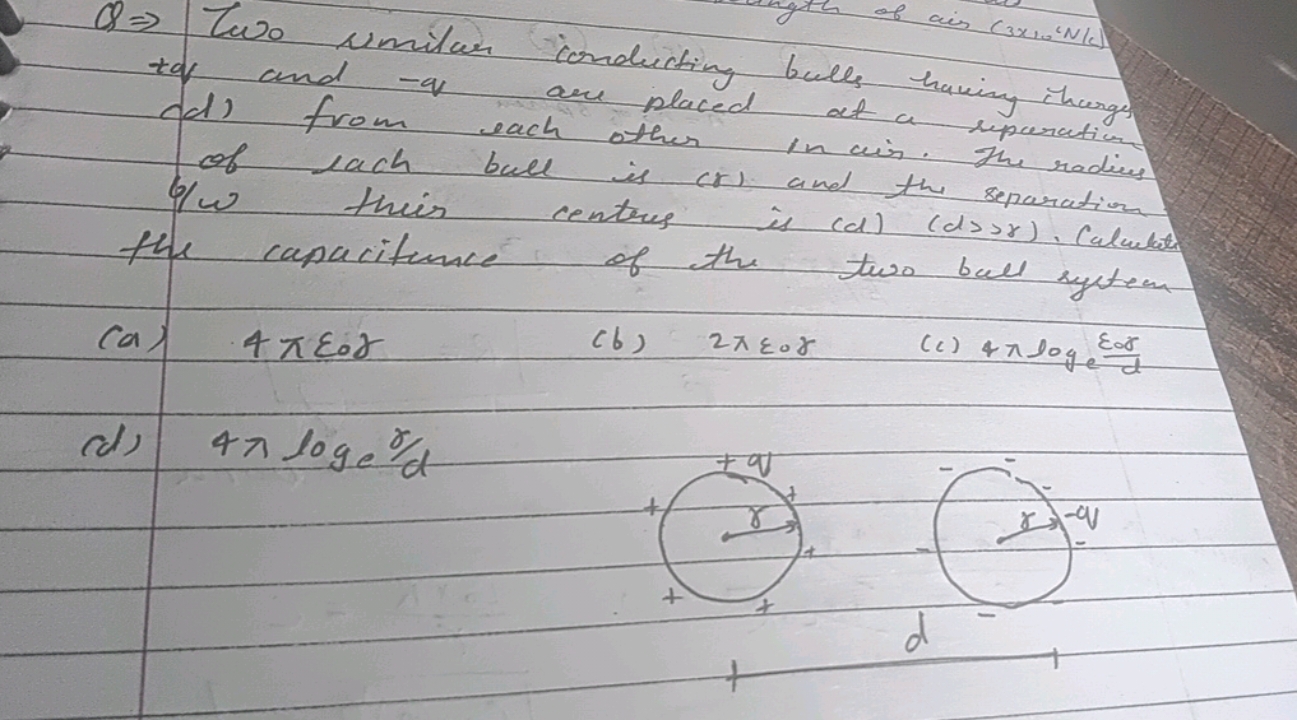 of air (3x10⁶N/C)
Q⇒ Two similar conducting balls having charges
+q and -q are placed at a separation
(d) from each other in air. The radius
of each ball is (r) and the separation
b/w their centers is (d) (d>>r). Calculate
the capacitance of the two ball system
(a) 4πε₀r (b) 2πε₀r (c) 4π logₑ ε₀r/d
(d) 4π logₑ r/d
+q
r
r
-q
d